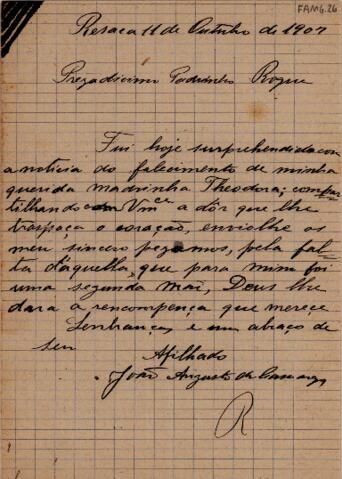 FAMG.26
Resaca 11 de Outubro de 1907
Prezadicimo Padrinho Roque
Fui hoje surprehendido com
a noticia do falecimento de minha
querida madrinha Theodora; compar
tilhando com Vmce a dôr que lhe
traspaça o coração, enviolhe os
meu sincero pezamos, pela fal-
ta d'aquella, que para mim foi
uma segunda mãi, Deus lhe
dara a rencompença que mereçe
Lenbranças e um abraço de
seu Afilhado
João Augusto de Camargo
R